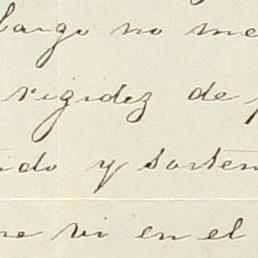 bargo no me
rigidez de p
ido y sosten
me vi en el